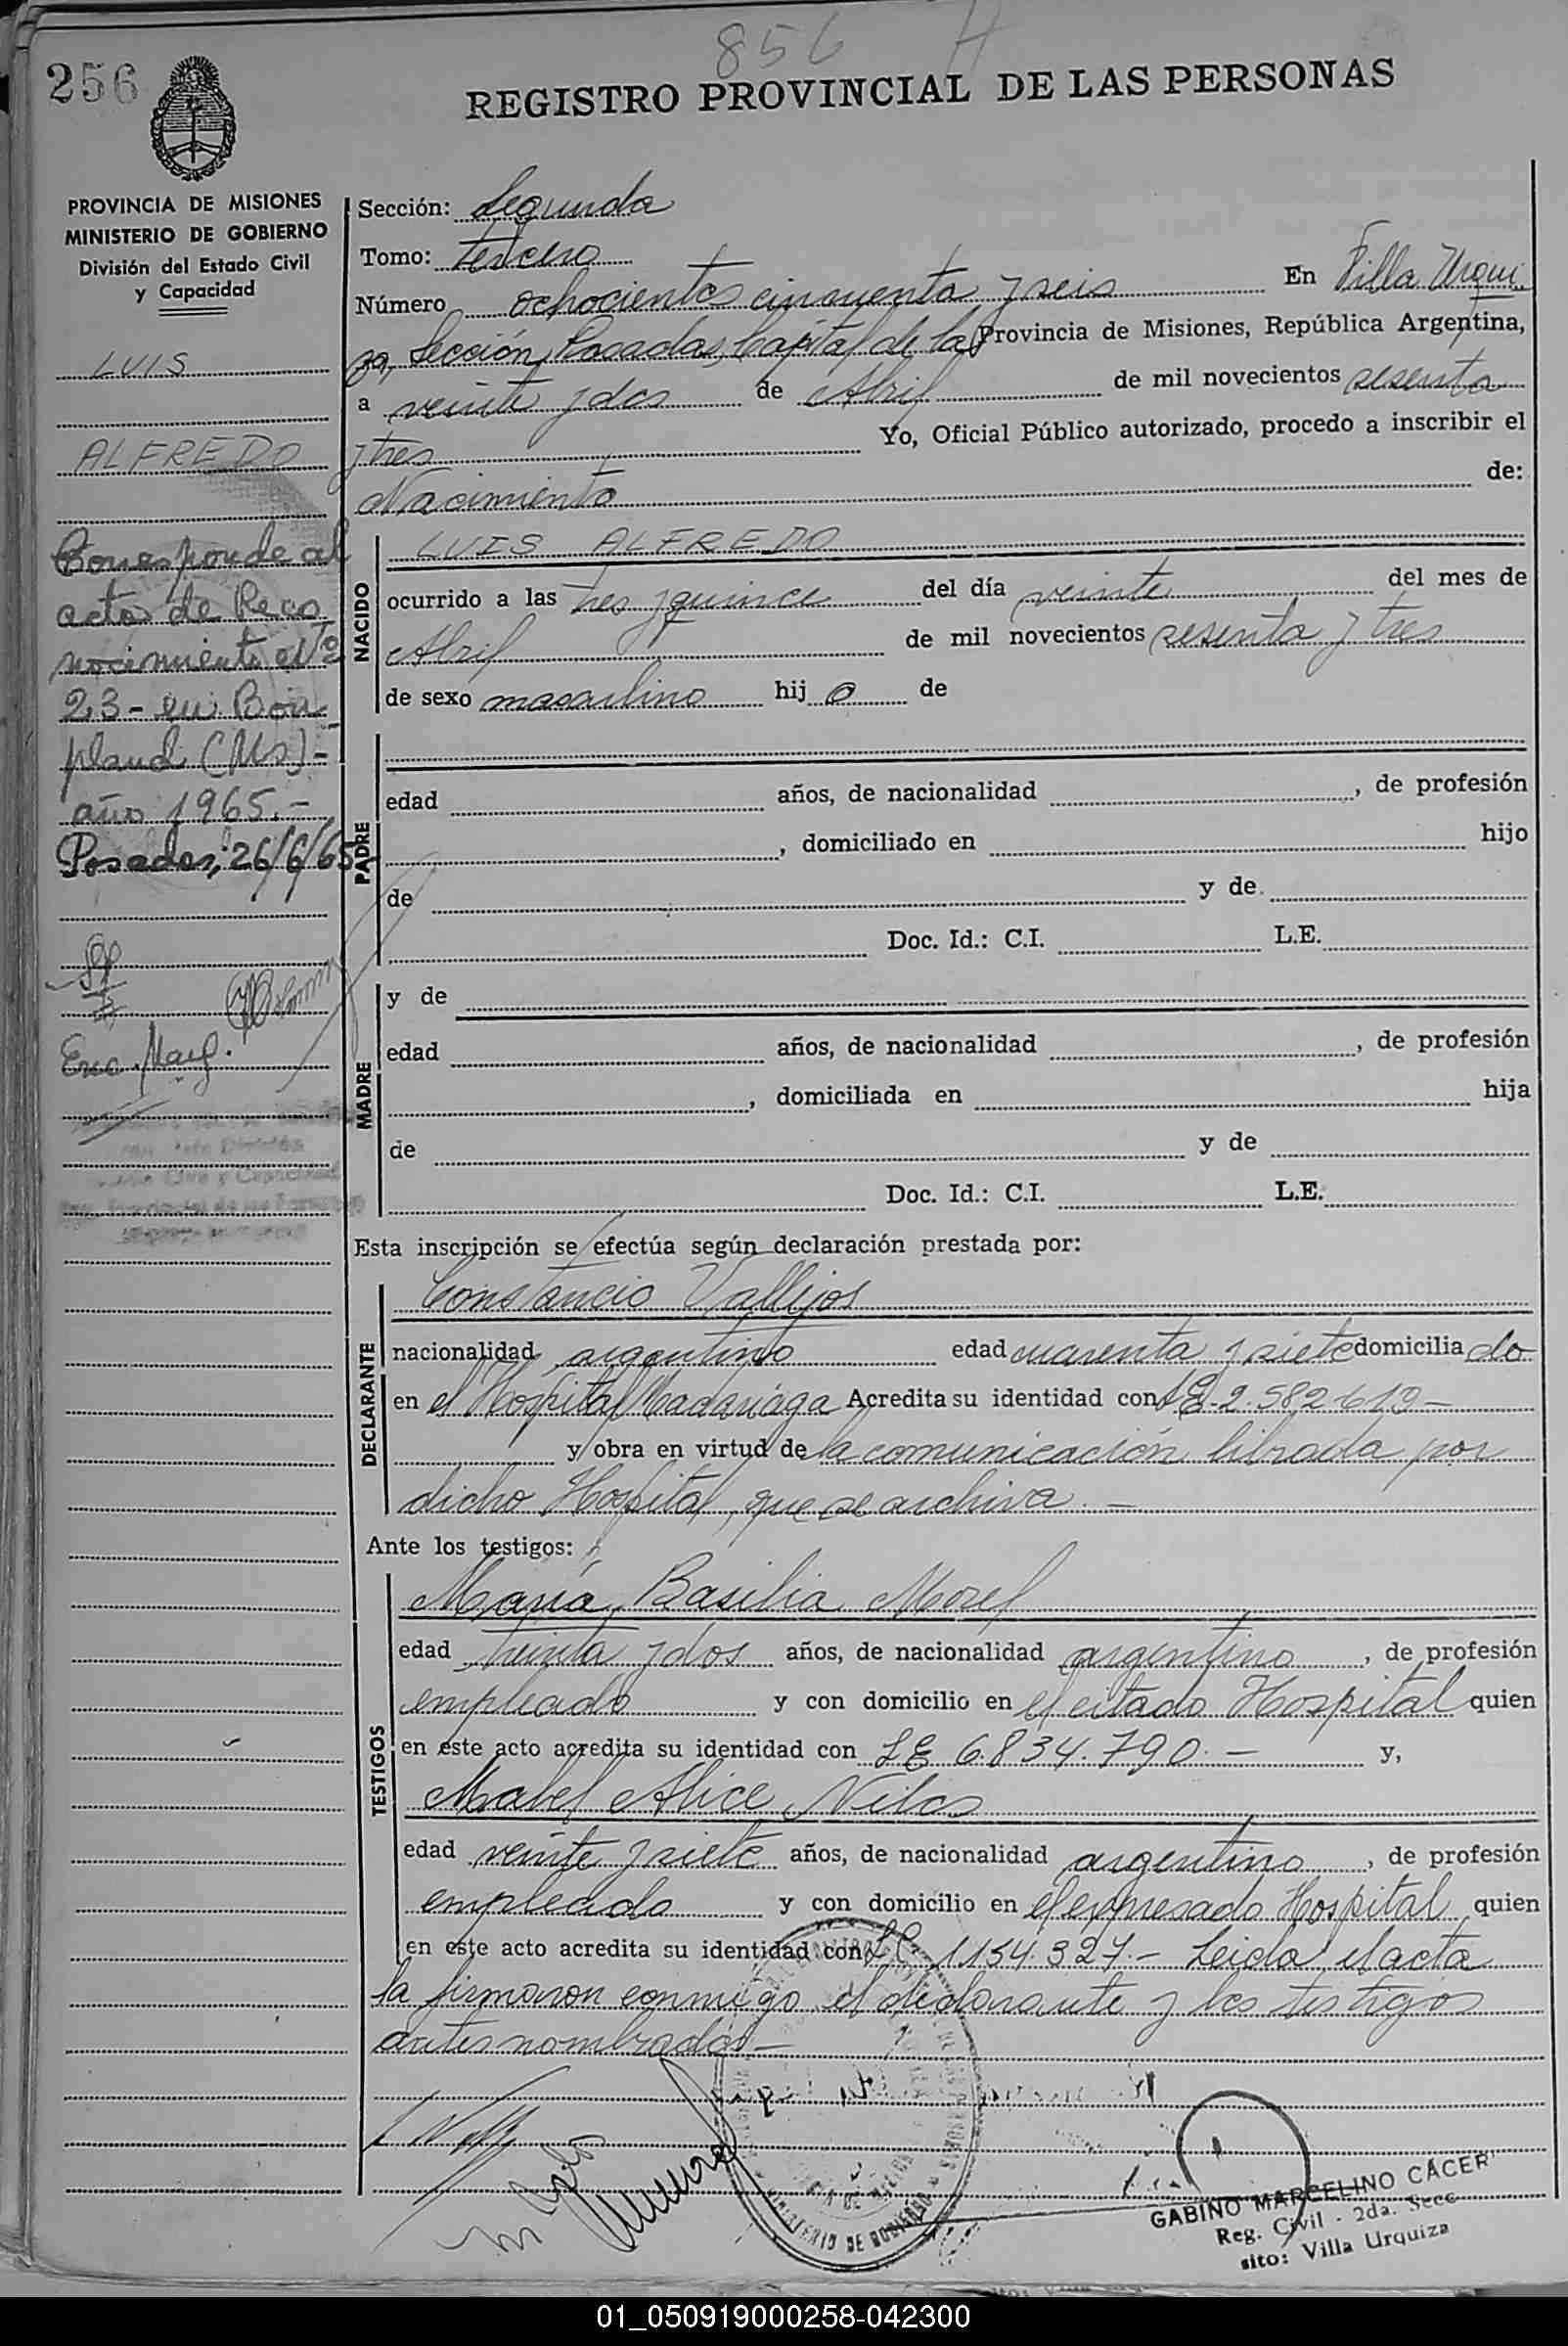 856 H
256
REGISTRO PROVINCIAL DE LAS PERSONAS
PROVINCIA DE MISIONES
MINISTERIO DE GOBIERNO
División del Estado Civil
y Capacidad
LUIS
ALFREDO
Corresponde al
acta de Reco
nocimiento Nº
23 - en Bon
pland (Ms) -
año 1965.-
Posadas, 26/6/65
Enc. Marg.
Sección: Segunda
Tomo: tercero
Número ochocientos cincuenta y seis En Villa Urqui
za, Sección, Posadas, Capital de la Provincia de Misiones, República Argentina,
a veinte y dos de Abril de mil novecientos sesenta
y tres Yo, Oficial Público autorizado, procedo a inscribir el
Nacimiento de:
NACIDO
LUIS ALFREDO
ocurrido a las tres y quince del día veinte del mes de
Abril de mil novecientos sesenta y tres
de sexo masculino hij o de
PADRE
edad años, de nacionalidad , de profesión
, domiciliado en hijo
de y de
Doc. Id.: C.I. L.E.
MADRE
y de
edad años, de nacionalidad , de profesión
, domiciliada en hija
de y de
Doc. Id.: C.I. L.E.
Esta inscripción se efectúa según declaración prestada por:
DECLARANTE
Constancio Vallejos
nacionalidad argentino edad cuarenta y siete domicilia do
en el Hospital Madariaga Acredita su identidad con LE-2.582.619-
y obra en virtud de la comunicación librada por
dicho Hospital, que se archiva.-
Ante los testigos:
TESTIGOS
María Basilia Morel
edad treinta y dos años, de nacionalidad argentino , de profesión
empleado y con domicilio en el citado Hospital quien
en este acto acredita su identidad con LE 6.834.790.- y,
Mabel Alice Nilos
edad veinte y siete años, de nacionalidad argentino , de profesión
empleado y con domicilio en el expresado Hospital quien
en este acto acredita su identidad con LC 1154.327.- Leida el acta
la firmaron conmigo el declarante y los testigos
antes nombrados-
MINISTERIO DE GOBIERNO
GABINO MARCELINO CÁCER
Reg. Civil - 2da. Secc
sito: Villa Urquiza
01_050919000258-042300